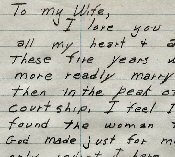 To my Wife,
I love you
all my heart &
These five years
more readly marry
then in the peak of
courtship, I feel I
found the woman
God made just for